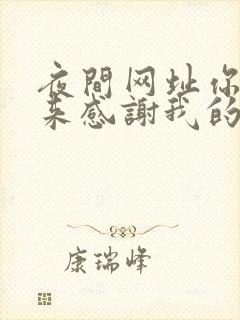 夜間网址你
来感謝我的
康瑞峰